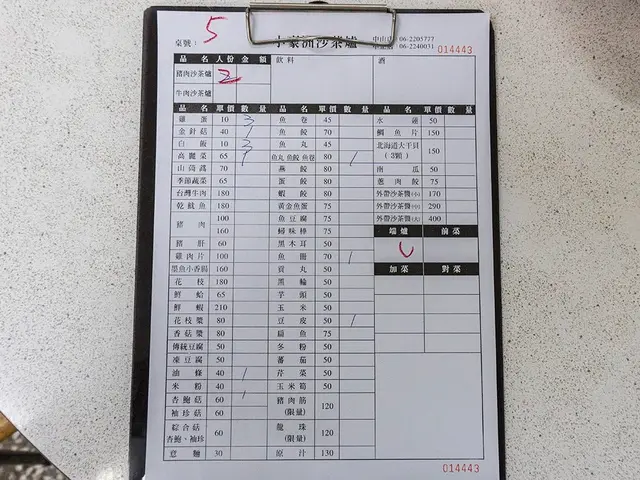 桌號： 5 小豪洲沙茶爐 中山店：06-2205777
06-2240031 014443
品名 人份 金額 飲料 酒
豬肉沙茶爐 2
牛肉沙茶爐
品名 單價 數量 品名 單價 數量 品名 單價 數量
雞蛋 10 3 魚卷 45 水蓮 50
金針菇 40 1 魚餃 70 鯛魚片 150
白飯 10 魚丸 45 北海道大干貝（3顆） 150
高麗菜 65 1 魚丸 魚餃 魚卷 80 1
山茼萵 70 燕餃 80 南瓜 50
季節蔬菜 65 蛋餃 80 蔥肉餃 75
台灣牛肉 180 蝦餃 80 外帶沙茶醬(小) 170
乾魷魚 180 黃金魚蛋 75 外帶沙茶醬(中) 290
豬肉 100 魚豆腐 75 外帶沙茶醬(大) 400
160 蟳味棒 75 端爐 前菜
豬肝 60 黑木耳 50
雞肉片 100 魚冊 70 1
墨魚小香腸 160 貢丸 50 加菜 對菜
花枝 180 黑輪 50
鮮蛤 65 芋頭 50
鮮蝦 210 玉米 50
花枝漿 80 豆皮 50 1
香菇漿 80 扁魚 75
傳統豆腐 50 冬粉 50
凍豆腐 50 蕃茄 50
油條 40 1 芹菜 50
米粉 40 玉米筍 50
杏鮑菇 60 1 豬肉筋(限量) 120
袖珍菇 60
綜合菇 杏鮑、袖珍 60 龍珠(限量) 120
意麵 30 原汁 130
014443